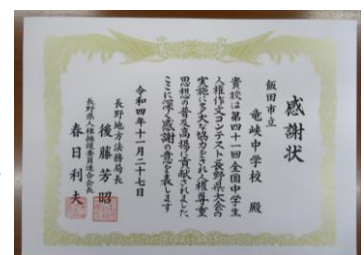 感謝状
飯田市立
竜峡中学校 殿
貴校は第四十一回全国中学生
人権作文コンテスト長野県大会の
実施に多大な協力をされ人権尊重
思想の普及高揚に貢献されました
ここに深く感謝の意を表します
令和四年十一月二十七日
長野地方法務局長
後藤芳昭
長野県人権擁護委員連合会長
春日利夫